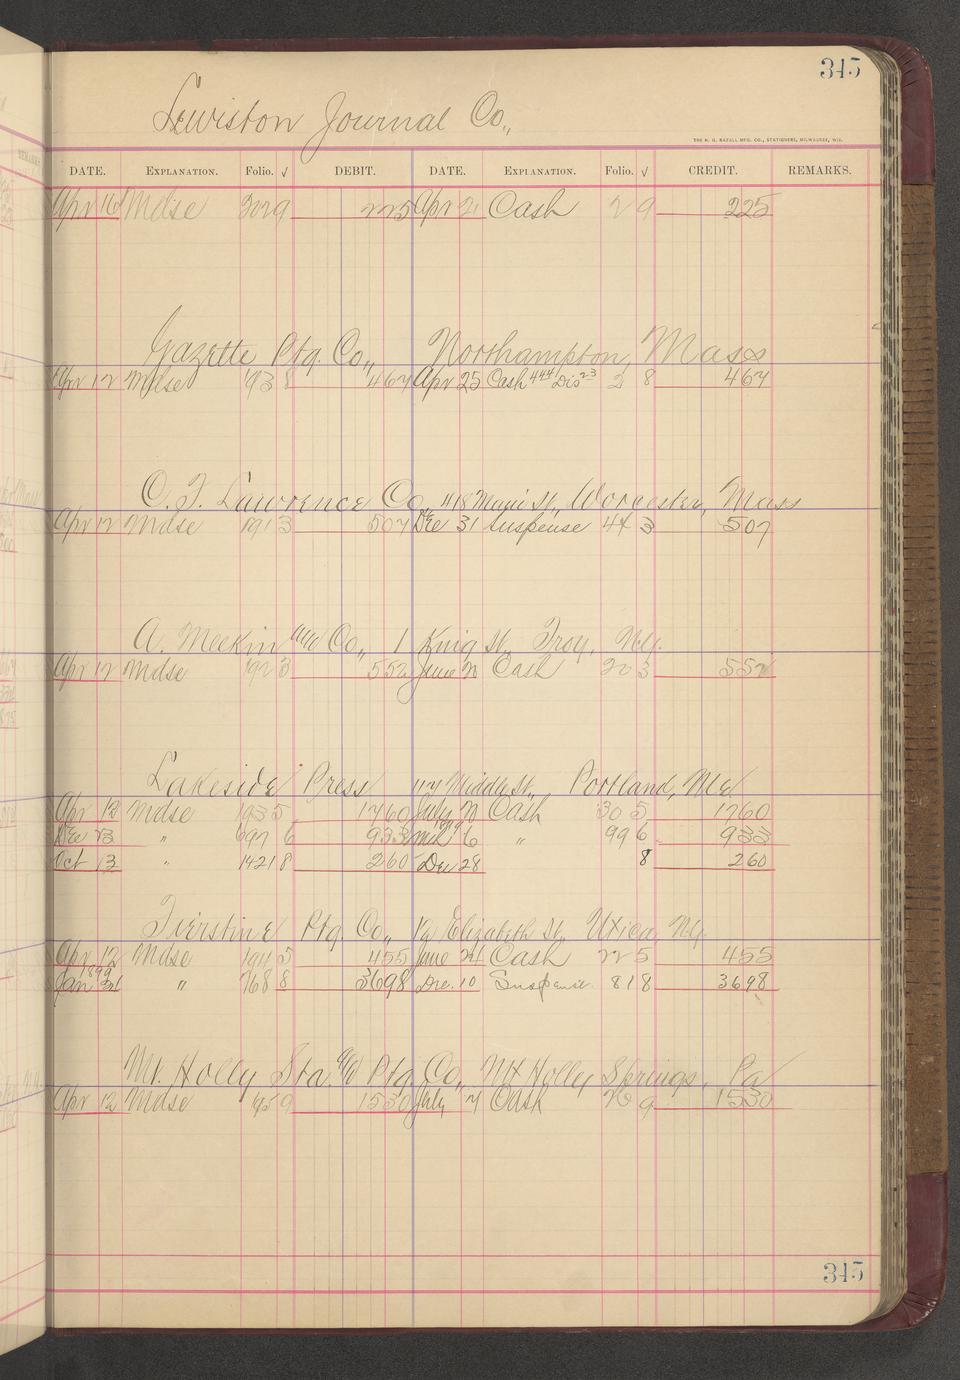 345
Lewiston Journal Co.,
THE H. G. RAZALL MFG. CO., STATIONERS, MILWAUKEE, WIS.
DATE. EXPLANATION. Folio. √ DEBIT. DATE. EXPLANATION. Folio. √ CREDIT. REMARKS.
Apr 16 Mdse 202 9 225 Apr 21 Cash 2 9 225
Gazette Ptg. Co., Northampton, Mass
Apr 12 Mdse 193 8 467 Apr 25 Cash 444 Dis 23 2 8 467
O. F. Lawrence Co., 418 Main St., Worcester, Mass
Apr 12 Mdse 191 3 507 Dec 31 Suspense 44 3 507
A. Meekin Co., 1 King St., Troy, Ny.
Apr 12 Mdse 192 3 552 June 20 Cash 20 3 552
Lakeside Press 117 Middle St., Portland, Me
Apr 12 Mdse 193 5 1760 July 20 Cash 30 5 1760
Dec 23 " 697 6 933 Mch 6 " 99 6 933
Oct 13 " 1421 8 260 Dec 28 8 260
Ptg. Co., Elizabeth St., Utica, Ny.
Apr 12 Mdse 194 5 455 June 24 Cash 22 5 455
1899
Jan 31 " 768 8 3698 Dec. 10 Suspense 81 8 3698
Mt. Holly Sta. & Ptg. Co., Mt Holly Springs, Pa
Apr 12 Mdse 195 9 1530 July 7 Cash 26 9 1530
345